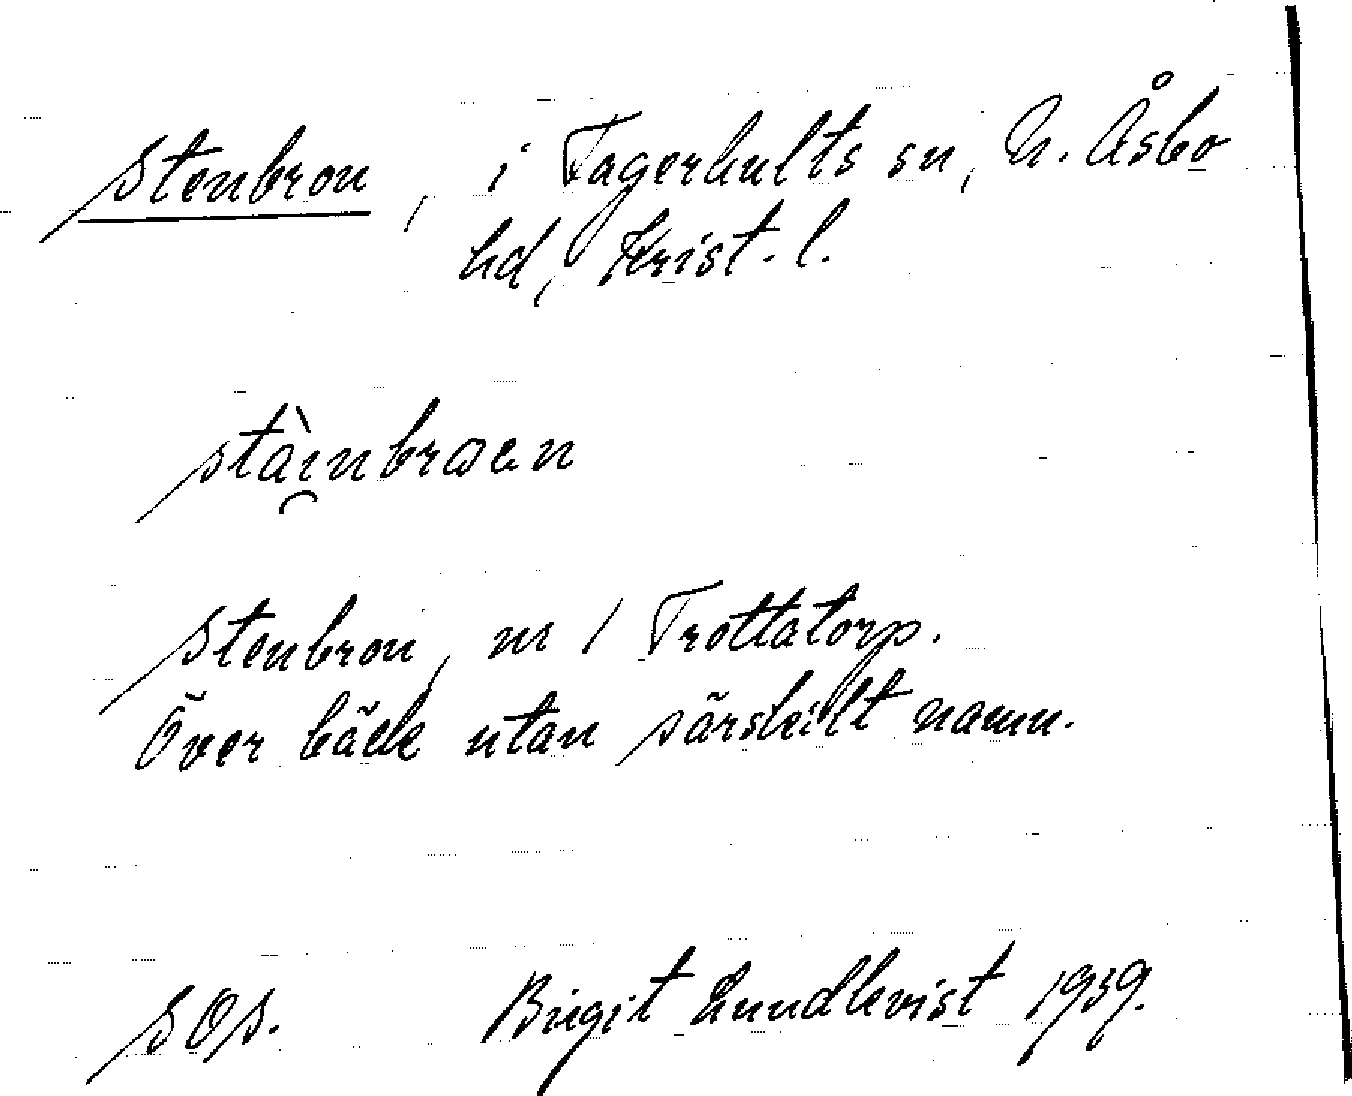 Stenbron, i Fagerhults sn, N. Åsbo
hd, Krist. l.
stàı̯nbroen
Stenbron, nr 1 Trottatorp.
Över bäck utan särskilt namn.
SOS. Birgit Lundkvist 1939.